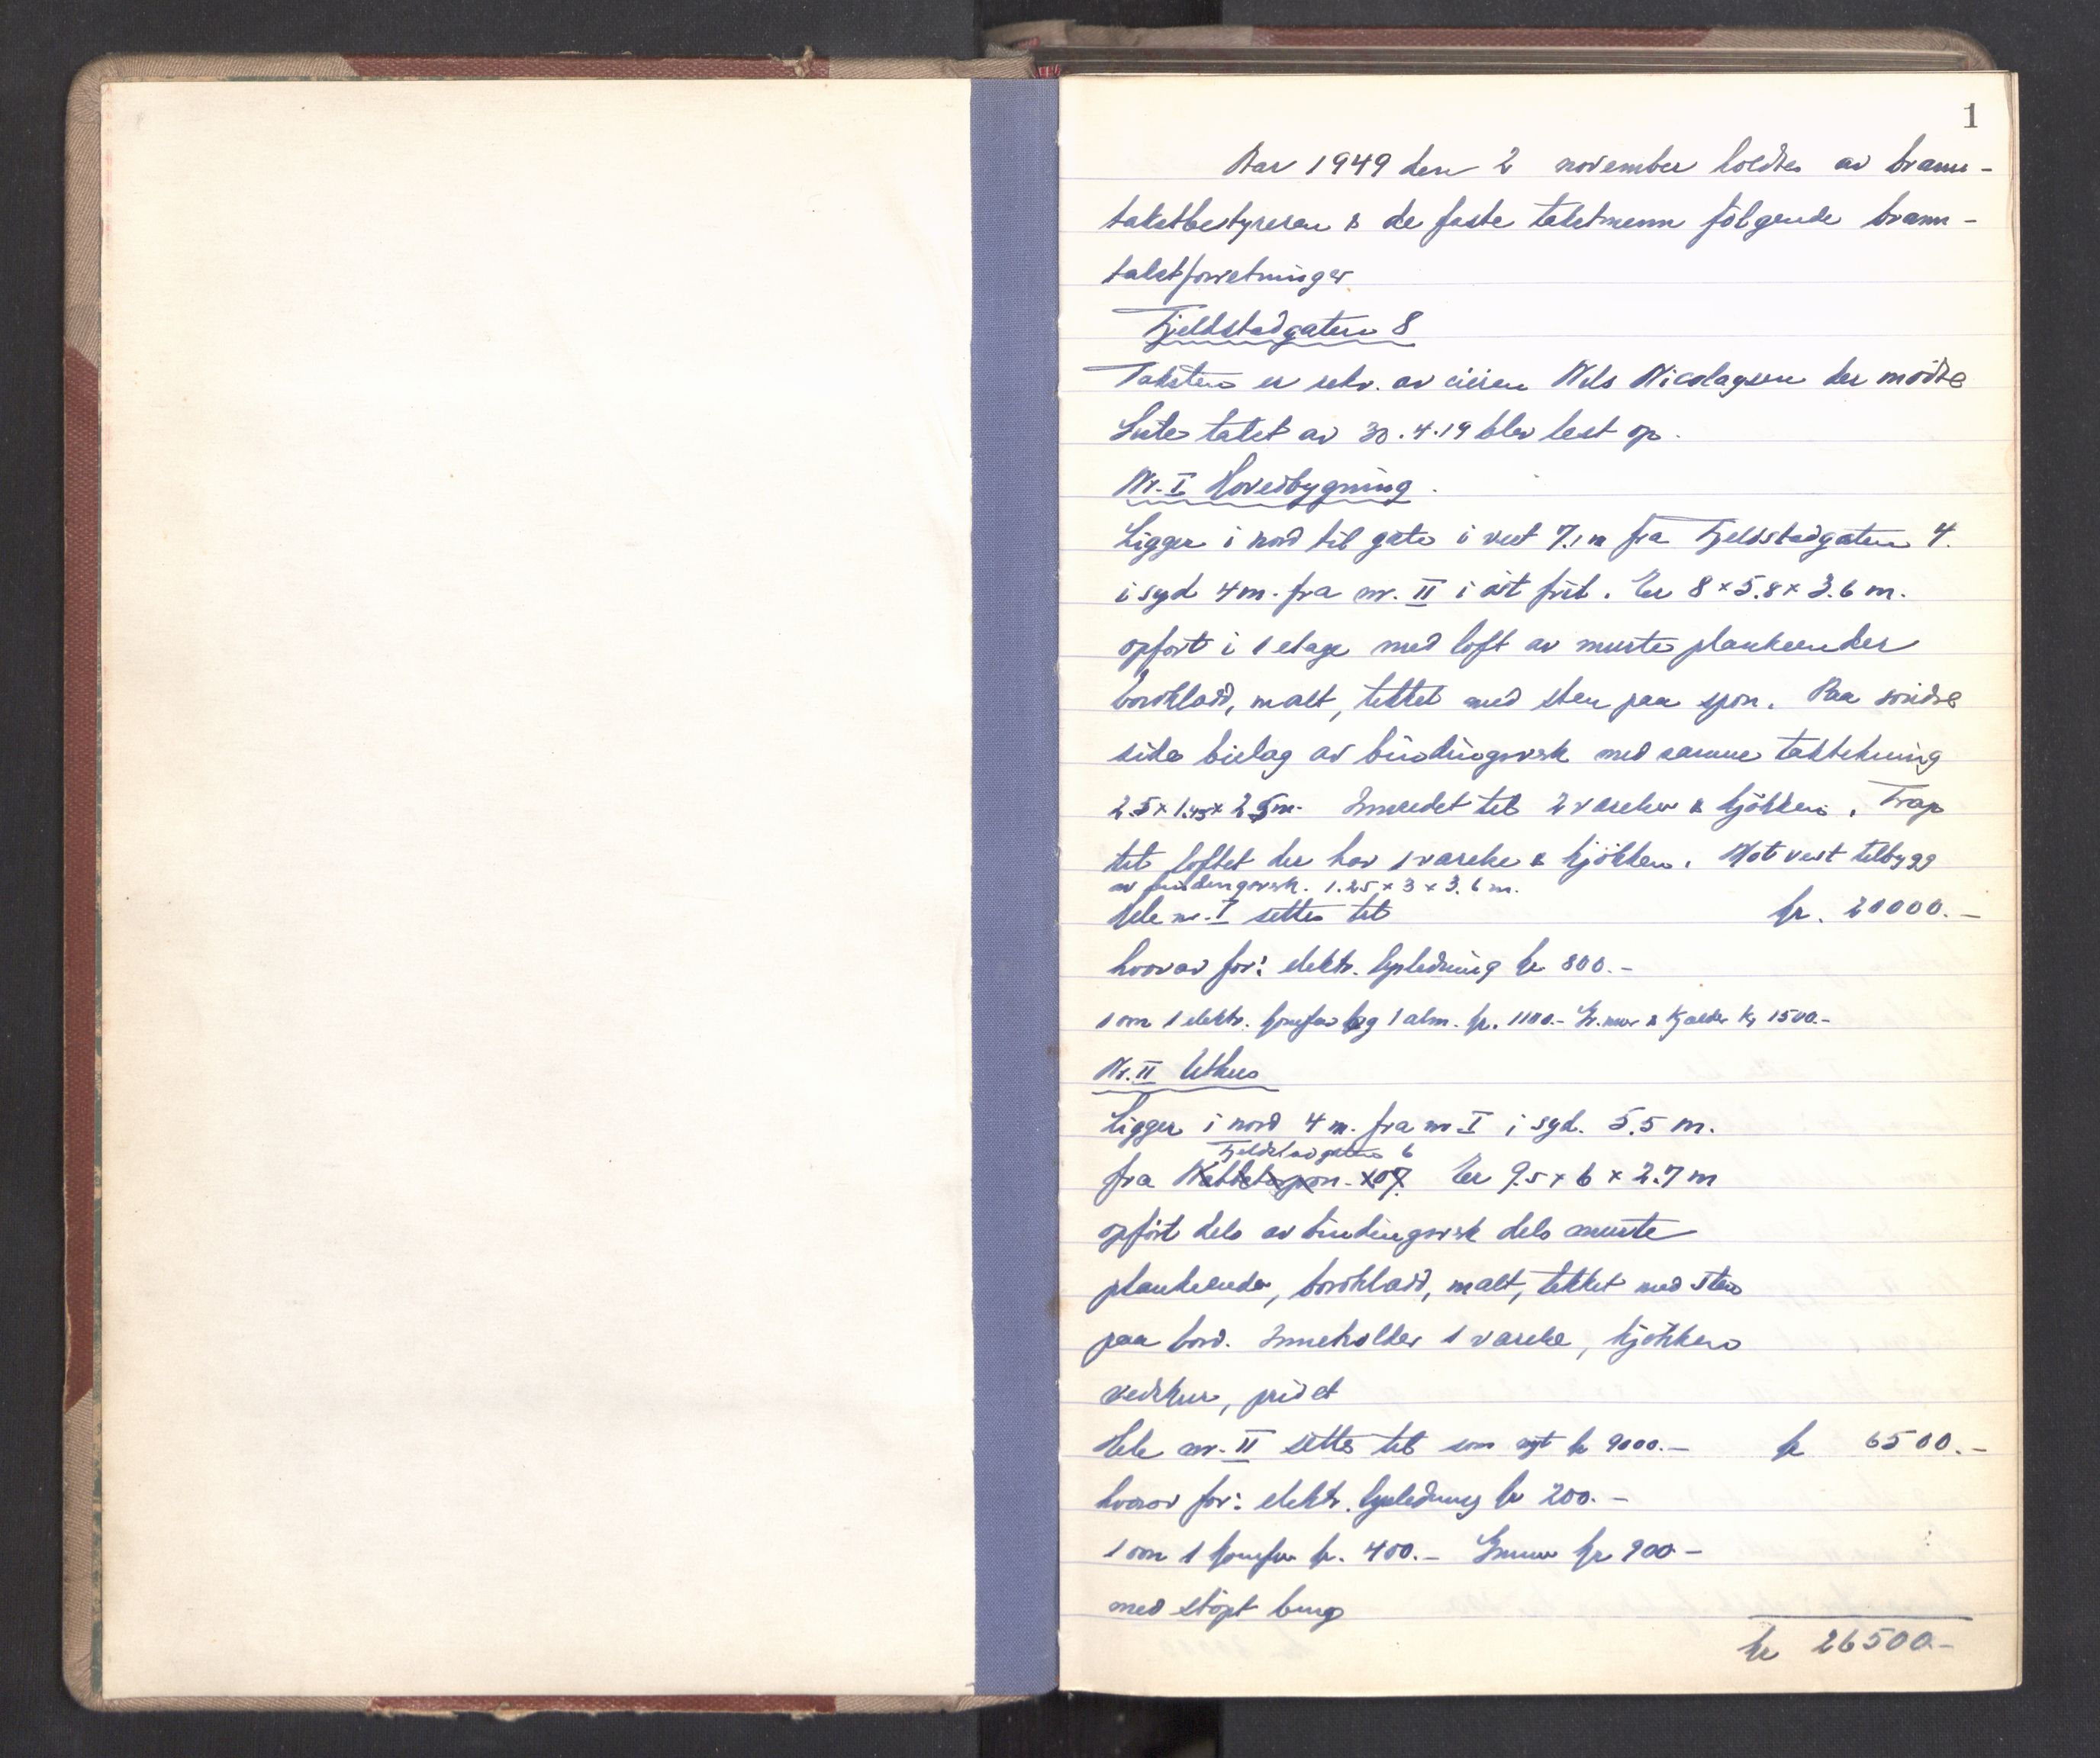 1
Aar 1949 den 2 november holdtes av brann-
takstbestyreren & de faste takstmenn følgende brann-
takstforretninger
Fjeldstadgaten 8
Taksten er rekv. av eieren Nils Nicolaysen der mødte
Siste takst av 30.4.19 blev lest op.
Nr. I Hovedbygning.
Ligger i nord til gate i vest 7.1 m fra Fjeldstadgaten 4.
i syd 4 m. fra nr. II i øst frit. Er 8 × 5.8 × 3.6 m.
opført i 1 etage med loft av murte plankeender
bordkladd, malt, tekket med sten paa spon. Paa søndre
side bielag av bindingsverk med samme taktekning
2.5 × 1.45 × 2.5 m. Innredet til 2 værelser & kjøkken. Trap
til loftet der har 1 værelse & kjøkken. Mot vest tilbygg
av bindingsverk. 1.25 × 3 × 3.6 m.
Hele nr. I settes til kr. 20000.-
hvorav for: elektr. lysledning kr 800.-
1 ovn 1 elektr. komfur og 1 alm. kr. 1100.- Gr. mur & kjælder kr 1500.-
Nr. II Uthus
Ligger i nord 4 m. fra nr I i syd. 5.5 m.
Fjeldstadgaten 6
fra 107. Er 9.5 × 6 × 2.7 m
opført dels av bindingsverk dels murte
plankeender, bordkladd, malt, tekket med sten
paa bord. Inneholder 1 værelse, kjøkken
vedskur, privet
Hele nr. II settes til som nyt kr 9000.- kr 6500.-
hvorav for: elektr. lysledning kr 200.-
1 ovn 1 komfur kr. 400.- Grmur kr 900-
med støpt
kr 26500-